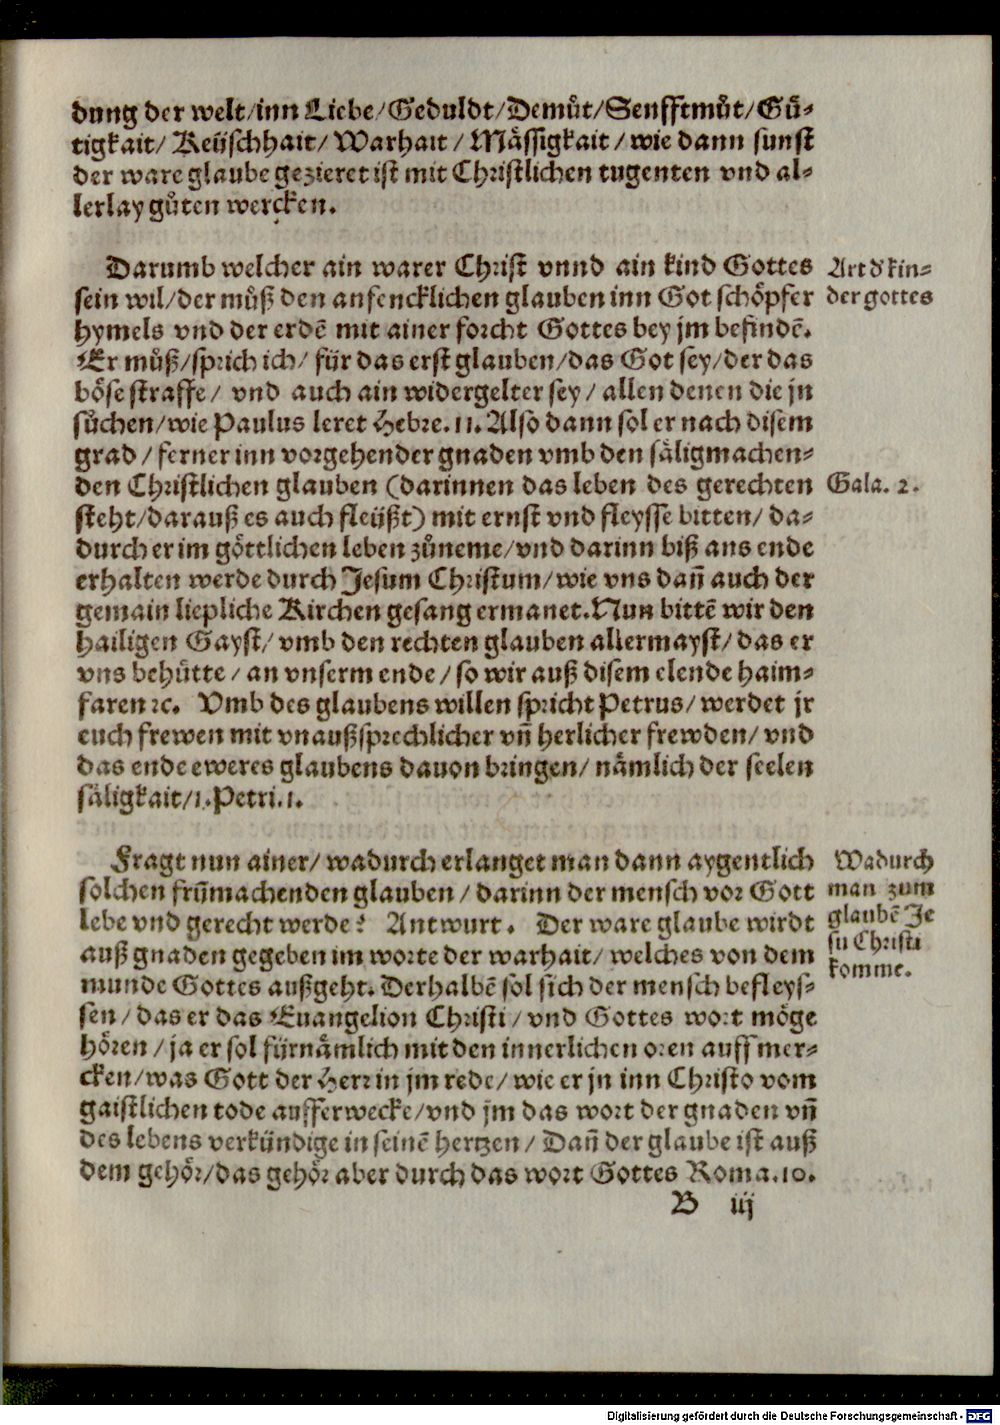 dung der welt/inn Liebe/Geduldt/Demuͤt/Senfftmuͤt/Guͤ⸗
tigkait/ Keüschhait/ Warhait / Maͤssigkait / wie dann sunst
der ware glaube gezieret ist mit Christlichen tugenten vnd al⸗
lerlay guͦten wercken.
Darumb welcher ain warer Christ vnnd ain kind Gottes
Art d' kin⸗
sein wil/der muͦß den anfencklichen glauben inn Got schoͤpfer
der gottes
hymels vnd der erdē mit ainer forcht Gottes bey jm befindē.
Er muͦß/sprich ich/ für das erst glauben/das Got sey/der das
boͤse straffe/ vnd auch ain widergelter sey / allen denen die jn
suͦchen/wie Paulus leret Hebre. 11. Also dann sol er nach disem
grad / ferner inn vorgehender gnaden vmb den saͤligmachen⸗
den Christlichen glauben (darinnen das leben des gerechten
Gala. 2.
steht/darauß es auch fleüßt) mit ernst vnd fleysse bitten/ da⸗
durch er im goͤttlichen leben zuͦneme/vnd darinn biß ans ende
erhalten werde durch Jesum Christum/wie vns dañ auch der
gemain liepliche Kirchen gesang ermanet. Nun bittē wir den
hailigen Gayst/ vmb den rechten glauben allermayst/ das er
vns behuͤtte / an vnserm ende / so wir auß disem elende haim⸗
faren ⁊c. Vmb des glaubens willen spricht Petrus/ werdet jr
euch frewen mit vnaußsprechlicher vñ herlicher frewden/ vnd
das ende eweres glaubens dauon bringen/ naͤmlich der seelen
saͤligkait/1. Petri. 1.
Fragt nun ainer/ wadurch erlanget man dann aygentlich
Wadurch
solchen frūmachenden glauben / darinn der mensch vor Gott
man zum
lebe vnd gerecht werde? Antwurt. Der ware glaube wirdt
glaubē Je
auß gnaden gegeben im worte der warhait/ welches von dem
su Christi
munde Gottes außgeht. Derhalbē sol sich der mensch befleys⸗
komme.
sen / das er das Euangelion Christi / vnd Gottes wort moͤge
hoͤren / ja er sol fürnaͤmlich mit den innerlichen oren auffmer⸗
cken/was Gott der Herr in jm rede/ wie er jn inn Christo vom
gaistlichen tode aufferwecke/vnd jm das wort der gnaden vñ
des lebens verkündige in seinē hertzen / Dañ der glaube ist auß
dem gehoͤr/das gehoͤr aber durch das wort Gottes Roma. 10.
B iij
Digitalisierung gefördert durch die Deutsche Forschungsgemeinschaft - DFG